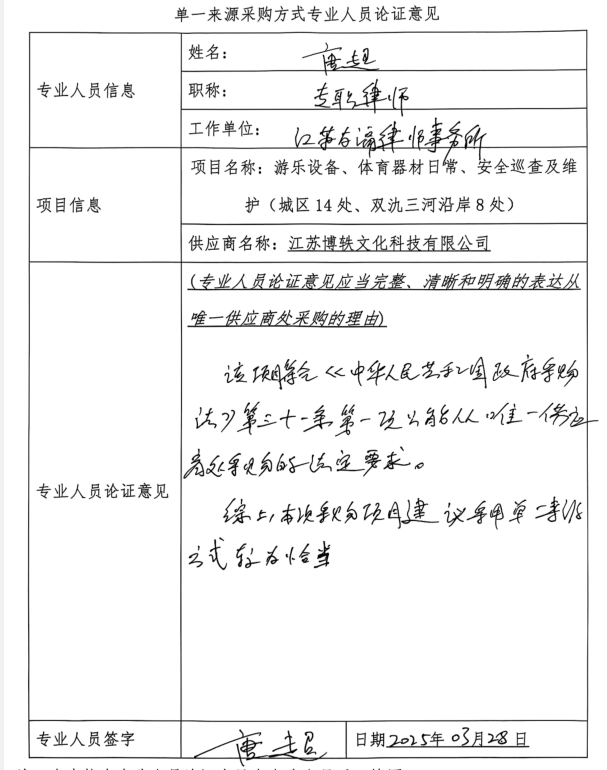 单一来源采购方式专业人员论证意见
专业人员信息
姓名：唐超
职称：专职律师
工作单位：江苏存浦律师事务所
项目信息
项目名称：游乐设备、体育器材日常、安全巡查及维
护（城区 14 处、双氿三河沿岸 8 处）
供应商名称：江苏博轶文化科技有限公司
专业人员论证意见
(专业人员论证意见应当完整、清晰和明确的表达从
唯一供应商处采购的理由)
该项目符合《中华人民共和国政府采购
法》第三十一条第一项只能从唯一供应
商处采购的法定要求。
综上，本次采购项目建议采用单一来源
方式较为恰当
专业人员签字
唐超
日期2025年03月28日